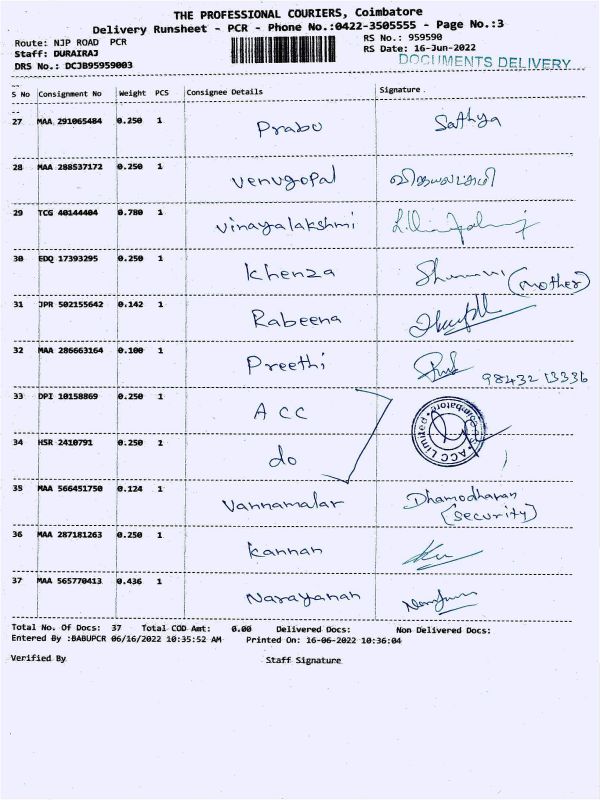 THE PROFESSIONAL COURIERS, Coimbatore
Delivery Runsheet - PCR - Phone No.:0422-3505555 - Page No.:3
Route: NJP ROAD PCR
RS No.: 959590
Staff: DURAIRAJ
RS Date: 16-Jun-2022
DRS No.: DCJB95959003
DOCUMENTS DELIVERY
S No Consignment No Weight PCS Consignee Details Signature
27 MAA 291065484 0.250 1 Prabu Sathya
28 MAA 288537172 0.250 1 Venugopal விஜயலட்சுமி
29 TCG 40144404 0.780 1 Vinayalakshmi
30 EDQ 17393295 0.250 1 Khenza (mother)
31 JPR 502155642 0.142 1 Rabeena
32 MAA 286663164 0.100 1 Preethi 98432 13336
33 DPI 10158869 0.250 1 ACC
ACC Limited Coimbatore
34 HSR 2410791 0.250 2 do
35 MAA 566451750 0.124 1 Vannamalar Dhamodharan
(security)
36 MAA 287181263 0.250 1 Kannan
37 MAA 565770413 0.436 1 Narayanan
Total No. Of Docs: 37 Total COD Amt: 0.00 Delivered Docs: Non Delivered Docs:
Entered By :BABUPCR 06/16/2022 10:35:52 AM Printed On: 16-06-2022 10:36:04
Verified By Staff Signature